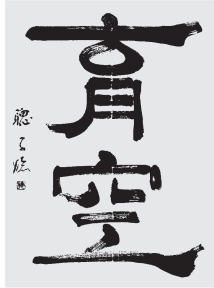 育空
聰之臨